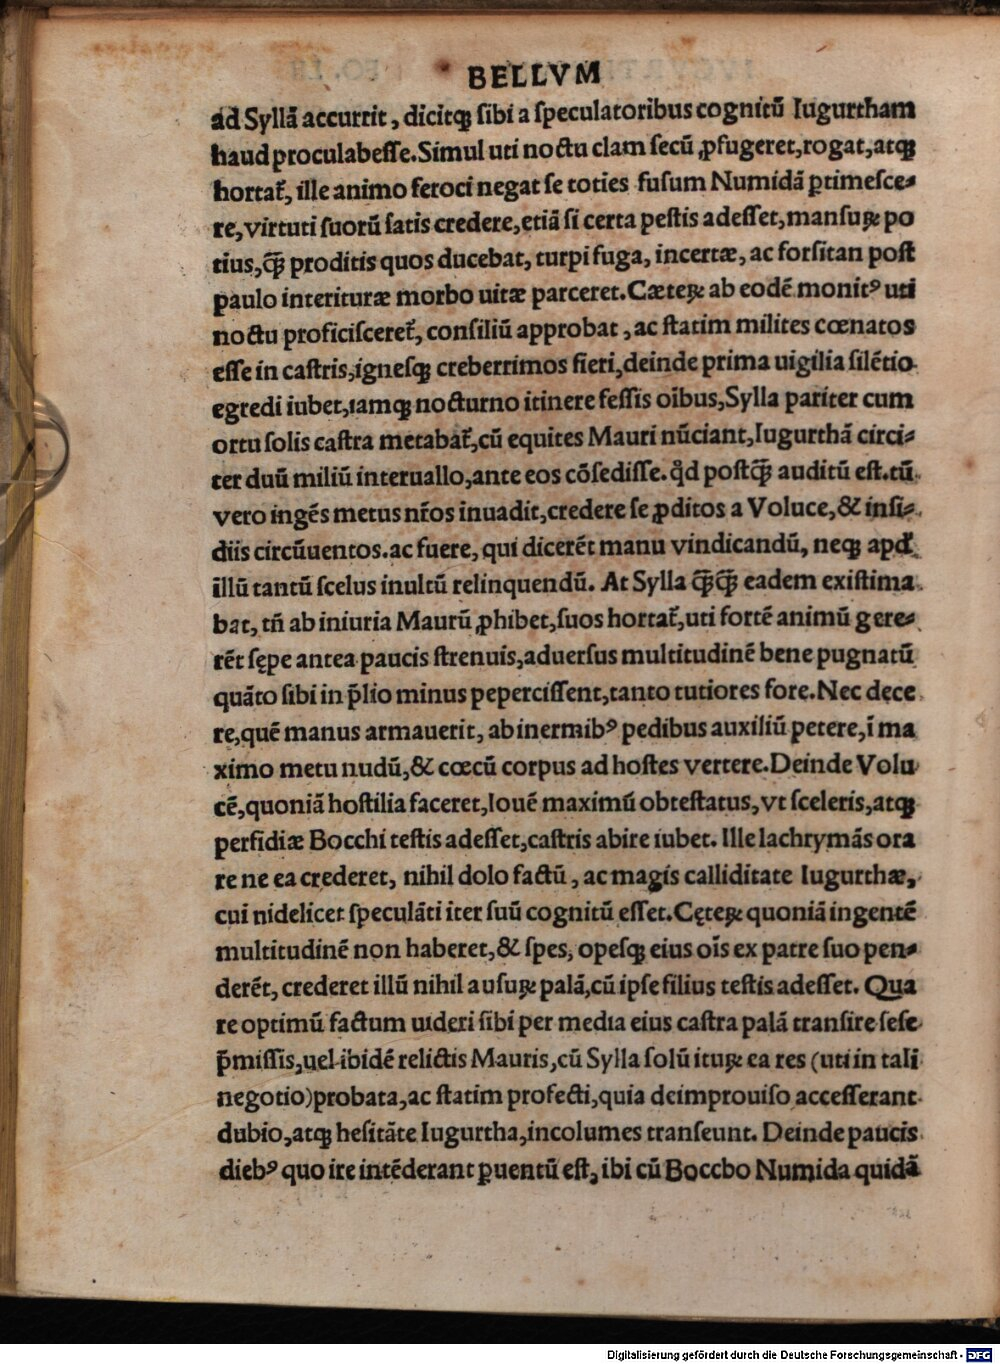 BELLVM
ad Syllā accurrit, dicitqꝫ ſibi a ſpeculatoribus cognitū Iugurtham
haud procul abeſſe. Simul uti noctu clam ſecū ꝓfugeret, rogat, atqꝫ
hortat᷒, ille animo feroci negat ſe toties fuſum Numidā ꝑtimeſce-
re, virtuti ſuorū ſatis credere, etiā ſi certa peſtis adeſſet, manſuꝝ po
tius, q̄ꝫ proditis quos ducebat, turpi fuga, incertæ, ac forſitan poſt
paulo interituræ morbo uitæ parceret. Cæteꝝ ab eodē monitꝰ uti
noctu proficiſceret᷒, conſiliū approbat, ac ſtatim milites cœnatos
eſſe in caſtris, igneſqꝫ creberrimos fieri, deinde prima uigilia ſilētio
egredi iubet, iamqꝫ nocturno itinere feſſis oībus, Sylla pariter cum
ortu ſolis caſtra metabat᷒, cū equites Mauri nūciant, Iugurthā circi-
ter duū miliū interuallo, ante eos cōſediſſe. qd̓ poſtq̄ꝫ auditū eſt. tū
vero ingēs metus nr̄os inuadit, credere ſe ꝓditos a Voluce, & inſi-
diis circūuentos. ac fuere, qui dicerēt manu vindicandū, neqꝫ apd̓
illū tantū ſcelus inultū relinquendū. At Sylla q̄ꝫq̄ꝫ eadem exiſtima
bat, tn̄ ab iniuria Maurū ꝓhibet, ſuos hortat᷒, uti fortē animū gere-
rēt ſępe antea paucis ſtrenuis, aduerſus multitudinē bene pugnatū
quāto ſibi in p̄lio minus peperciſſent, tanto tutiores fore. Nec dece
re, quē manus armauerit, ab inermibꝰ pedibus auxiliū petere, ī ma
ximo metu nudū, & cœcū corpus ad hoſtes vertere. Deinde Volu
cē, quoniā hoſtilia faceret, Iouē maximū obteſtatus, vt ſceleris, atqꝫ
perfidiæ Bocchi teſtis adeſſet, caſtris abire iubet. Ille lachrymās ora
re ne ea crederet, nihil dolo factū, ac magis calliditate Iugurthæ,
cui nidelicet ſpeculāti iter ſuū cognitū eſſet. Cęteꝝ quoniā ingentē
multitudinē non haberet, & ſpes, opeſqꝫ eius oīs ex patre ſuo pen-
derēt, crederet illū nihil auſuꝝ palā, cū ipſe filius teſtis adeſſet. Qua
re optimū factum uideri ſibi per media eius caſtra palā tranſire ſeſe
p̄miſſis, uel ibidē relictis Mauris, cū Sylla ſolū ituꝝ ea res (uti in tali
negotio) probata, ac ſtatim profecti, quia deimprouiſo acceſſerant
dubio, atqꝫ heſitāte Iugurtha, incolumes tranſeunt. Deinde paucis
diebꝰ quo ire intēderant ꝑuentū eſt, ibi cū Boccbo Numida quidā
Digitalisierung gefördert durch die Deutsche Forschungsgemeinschaft - DFG